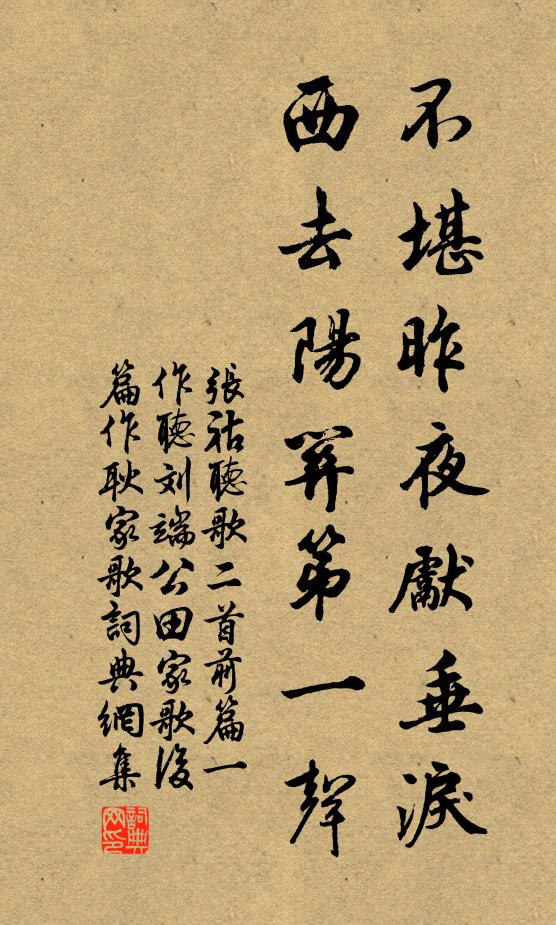 不堪昨夜獻垂淚
西去陽關第一聲
張祜聽歌二首前篇一
作聽刘端公田家歌後
篇作耿家歌詞典網集
詞典网印